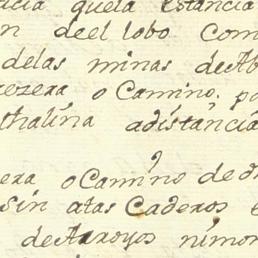 quela Estancia
n deel lobo Com
delas minas de Ab
rezera o Camino. pa
thalina adistancia
era o Camino de d
sin atas Caderos e
de Arroyos nimon